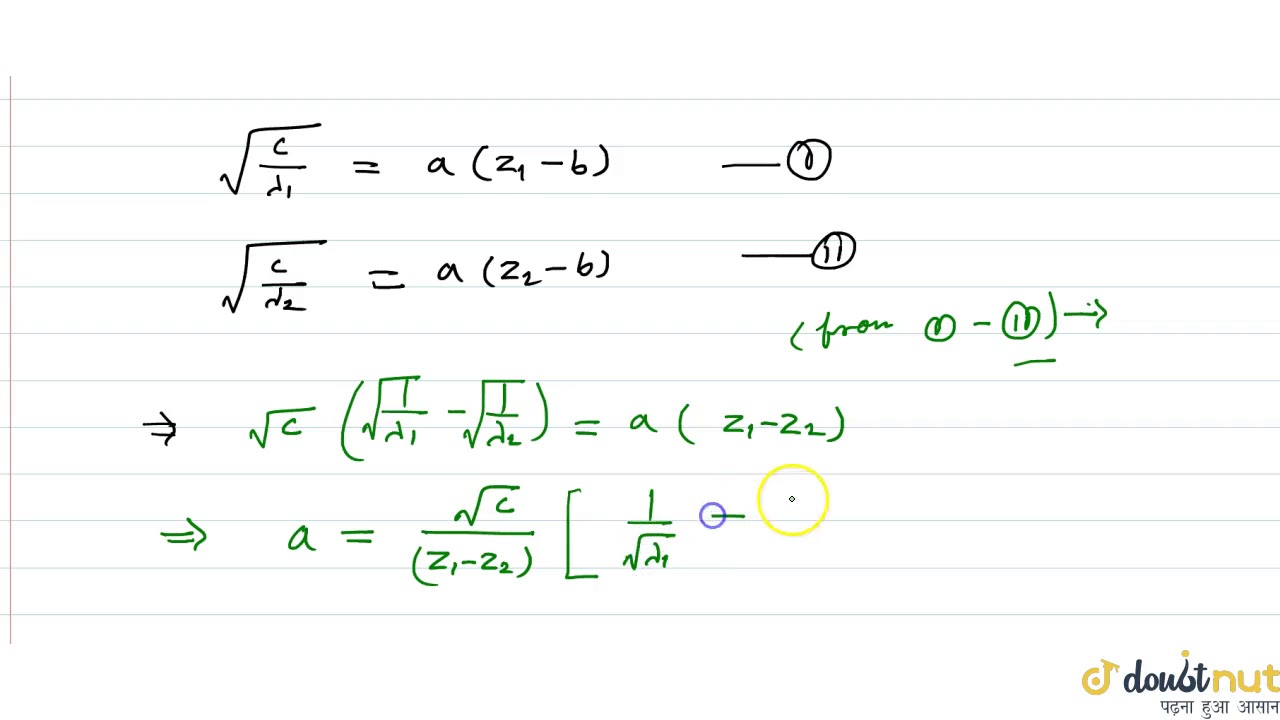 √(c/λ₁) = a (z₁ – b) — (i)
√(c/λ₂) = a (z₂ – b) — (ii)
(from (i) – (ii)) →
⇒ √c (√(1/λ₁) – √(1/λ₂)) = a ( z₁ – z₂)
⇒ a = √c/(z₁–z₂) [ 1/√λ₁ –
doubtnut
पढ़ना हुआ आसान